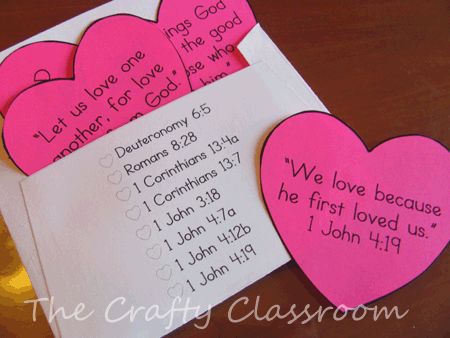 "Let us love one
another, for love
God."
ings God
the good
ose who
him."
Deuteronomy 6:5
Romans 8:28
1 Corinthians 13:4a
1 Corinthians 13:7
1 John 3:18
1 John 4:7a
1 John 4:12b
1 John 4:19
"We love because
he first loved us."
1 John 4:19
The Crafty Classroom